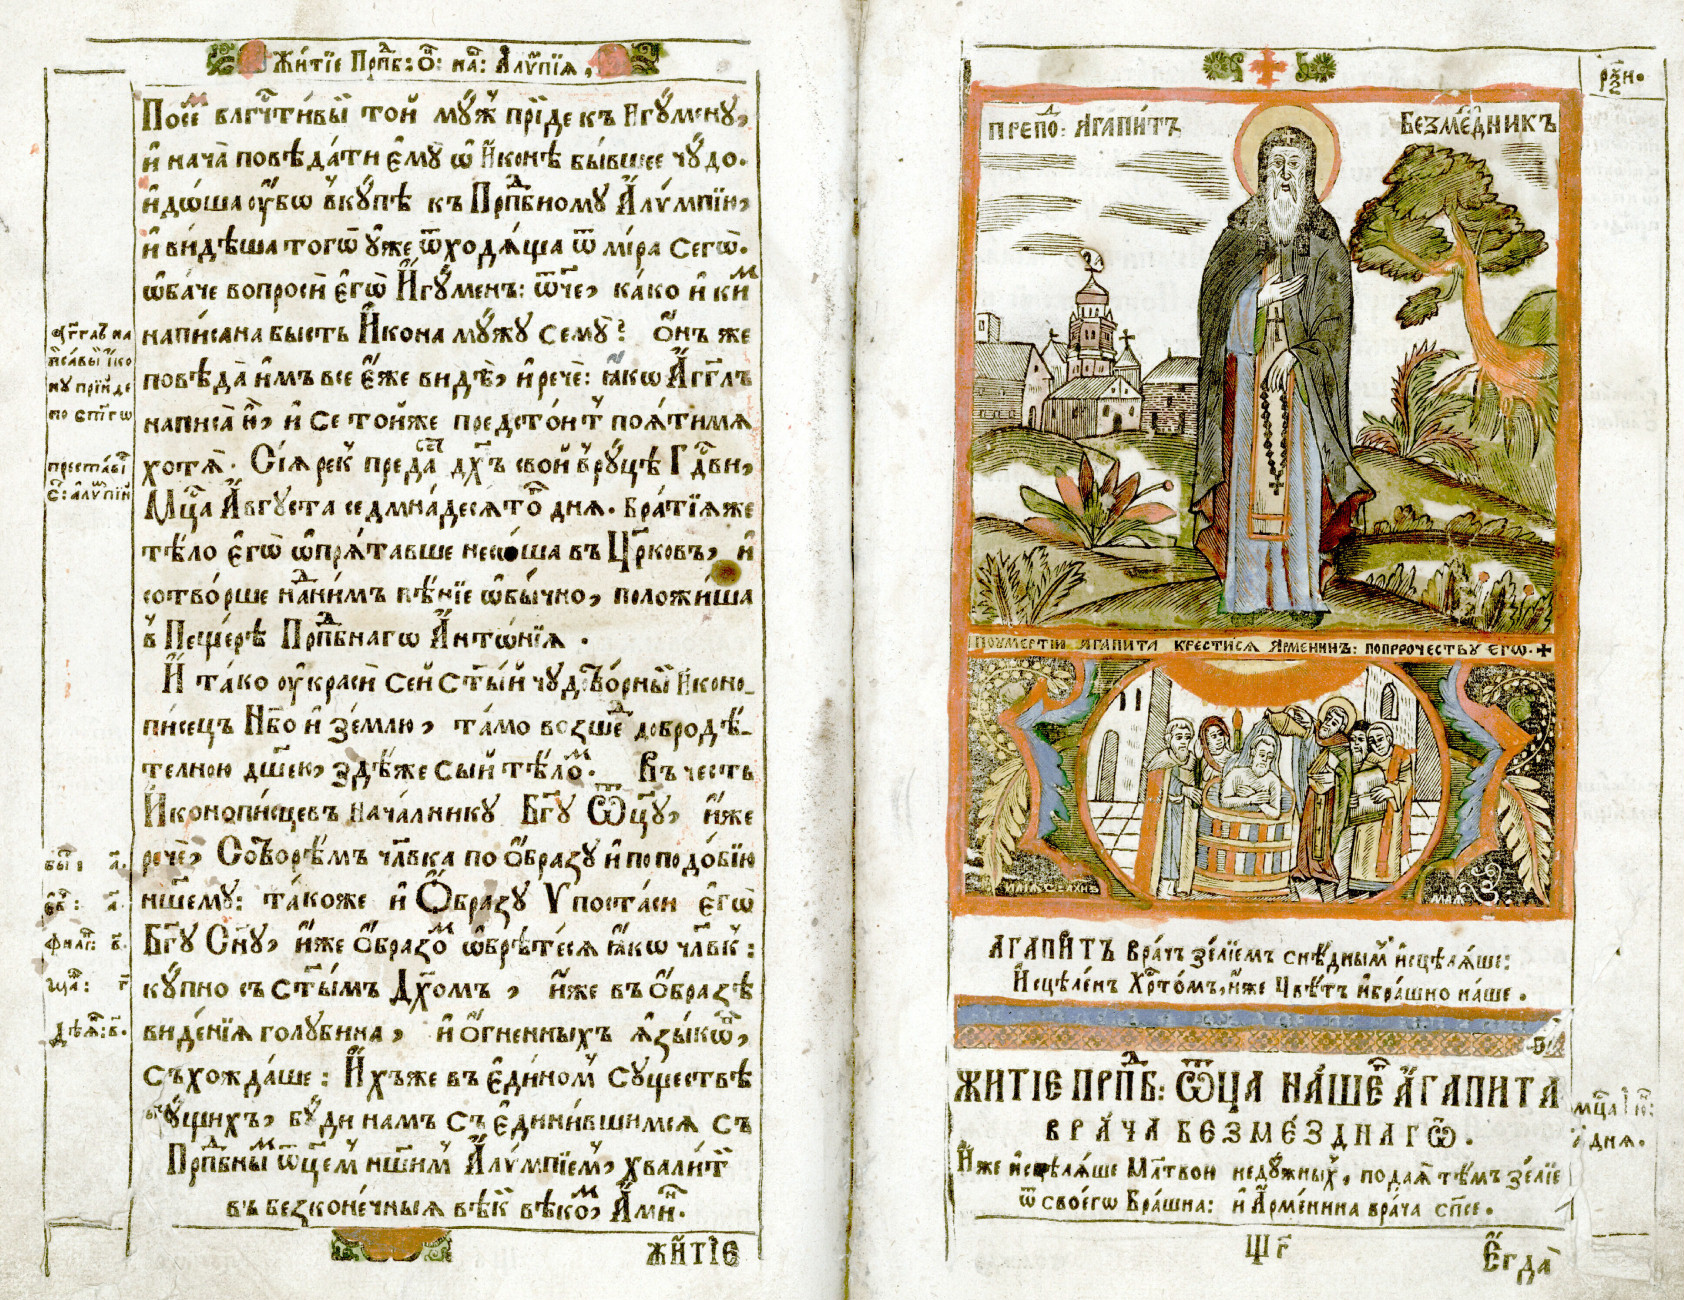 Жи́тїе Прпⷣб: Ѻ҃: на́: Алѵ́пїѧ,
Посеⷨ бл҃гчⷭ҇ти́вый той мꙋ́жъ прїи́де къ Игꙋ́менꙋ,
и҆ нача̀ повѣ́дати є҆мꙋ̀ ѡ҆ И҆ко́нѣ бы́вшее чꙋ́до.
и҆до́ша ᲂу҆̀бѡ вкꙋ́пѣ къ Прпⷣбномꙋ А҆лѵ́мпїю,
и҆ ви́дѣша того̀ ᲂу҆жѐ ѿходѧ́ща ѿ мі́ра сегѡ̀.
ѻ҆ба́че вопросѝ є҆гѡ̀ И҆гꙋ́менъ: ѿ́че, ка́ко и҆ киⷨ
напи́сана бысть И҆ко́на мꙋ́жꙋ семꙋ̀? Ѻ҆́нъ же
повѣ́да и҆̀мъ все є҆́же ви́дѣ, и҆ речѐ: ꙗ҆́кѡ А҆́гг҃лъ
написа̀ ю҆̀, и҆ се то́йже предстои́тъ поѧ́ти мѧ
хотѧ̀. Сїѧ̀ ре́къ предадѐ дх҃ъ сво́й в рꙋ́цѣ Гдⷭ҇ни,
Мцⷭ҇а А҆́вгꙋста седмна́десѧтⷢ҇о днѧ̀. Бра́тїѧже
тѣ́ло є҆гѡ̀ ѡ҆прѧ́тавше несо́ша въ Цр҃ковь, и҆
сотво́рше на́днимъ пѣ́нїе ѻ҆бы́чно, положи́ша
в Пеще́рѣ Прпⷣбнагѡ А҆нтѡ́нїѧ.
И҆ та́ко ᲂу҆красѝ се́й ст҃ы́й чꙋдотво́рный Иконо-
пи́сецъ Нб҃о и҆ зе́млю, та́мо возше́дъ доброд­ѣ́-
телною дш҃ею, здѣ́же сый тѣ́лоⷨ. Въ че́сть
И҆конопи́сцевъ нача́лникꙋ Бг҃ꙋ Ѿцꙋ̀, и҆́же
речѐ, Сотвори́мъ чл҃вка по ѻ҆́бразꙋ и҆ по подо́бїю
на́шемꙋ: та́коже и҆ Ѻ҆́бразꙋ Ѵпоста́си є҆гѡ̀
Бг҃ꙋ Сн҃ꙋ, и҆́же ѻ҆́бразоⷨ ѡ҆брѣ́тесѧ ꙗ҆́кѡ чл҃вкъ:
кꙋ́пно съ ст҃ы́мъ Дх҃омъ, и҆́же въ ѻ҆́бразѣ
ви́денїѧ голꙋби́на, и҆ ѻ҆́гненныхъ ѧ҆зы́кѡвъ,
съхожда́ше: И҆́хъже въ є҆ди́номъ сꙋществѣ̀
сꙋ́щихъ, бꙋ́ди намъ съ є҆дини́вшимсѧ съ
Прпⷣбныⷨ ѿце́мъ на́шимъ А҆лѵ́мпїемъ, хвали́ти
въ безконе́чныѧ вѣ́ки вѣкоⷨ, А҆ми́нь.
ЖИ́ТЇЕ
а҆́гг҃лъ на
писа́вый и҆ко
нꙋ прїи́де
по сп҃гѡ
преста́ви
С: а҆лѵ́пїй
быⷮ: а҃.
є҆в: а҃.
филпⷭ: в҃.
Дѣѧⷩ: в҃.
рⷥ҇н.
ПРЕПОⷣ: АГАПИ́ТЪ БЕЗМЕ́ЗДНИКЪ
ПО ꙊМЕРТІИ АГАПИТА КРЕСТИСѦ АРМЕНИНЪ: ПО ПРРОЧЕСТВꙊ ЕГѠ.
ИЛІА
АГАПИ́ТЪ вра́чъ зе́лїемъ снѣ́днымъ и҆сцѣлѧ́ше:
И҆сцѣле́нъ Хрⷭ҇то́мъ, и҆́же Цвѣ́тъ и҆ бра́шно на́ше.
ЖИТІЕ ПРПⷣБ: Ѿ́ЦА НА́ШЕГѠ А҆ГАПИТА
ВРА́ЧА БЕЗМЕ́ЗДНАГѠ.
И҆́же и҆сцѣлѧ́ше Мл҃твою недꙋ́жныхъ, пода́ѧ тѣ́мъ зе́лїе
ѿ своегѡ̀ Бра́шна: и҆ А҆рме́нина врача̀ сп҃се.
мцⷭ҇а І҆ю҆́:
днѧ.
Щ҃г
Є҆гда̀